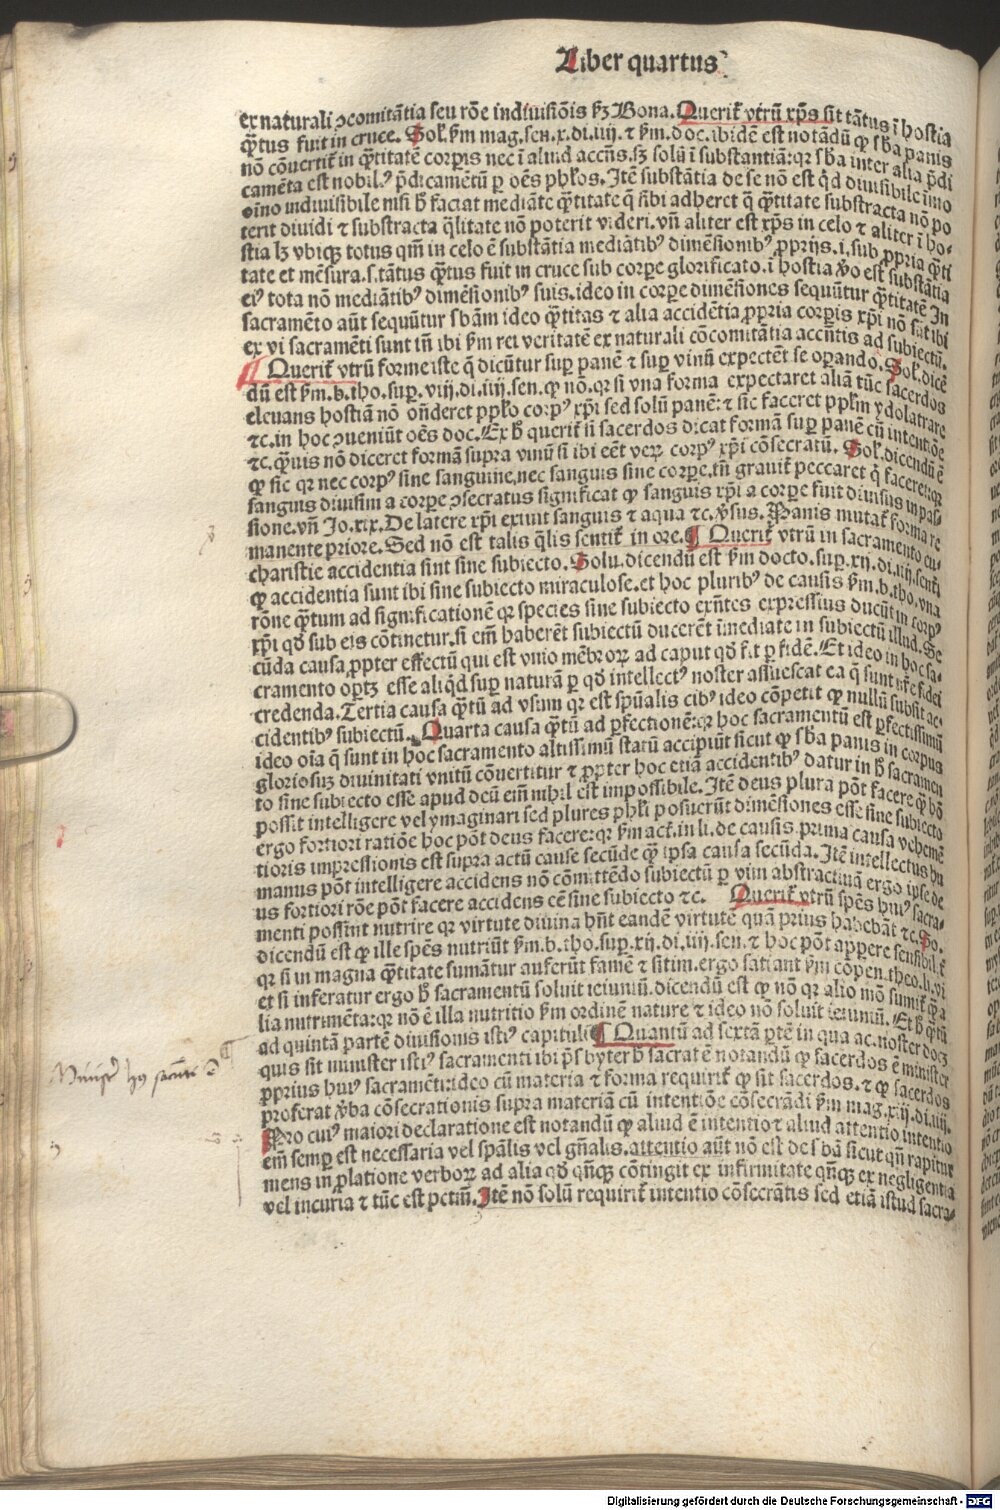 Liber quartus
ex naturali ↄcomitātia seu rōe indiuisiōis ẜm Bona. Querit̄ vtrū xp̄s sit tātus ī hostia
q̄tus fuit in cruce. Sol. ẜm mag. sen. x. di. iiij. ⁊ ẜm. doc. ibidē est notādū ꝙ sb̄a panis
nō cōuertit̄ in q̄titatē corpis nec ī aliud accn̄s. sꝫ solū ī substantiā: qꝛ sb̄a inter alia p̄di
camēta est nobilꝰ p̄dicamētū ꝑ oēs ph̄os. Itē substātia de se nō est q̇d diuisibile īmo
oīno indiuisibile nisi h̄ faciat mediāte q̄titate q̄ sibi adheret q̄ q̄titate substracta nō po
terit diuidi ⁊ substracta q̄litate nō poterit videri. vn̄ aliter est xp̄s in celo ⁊ aliter ī ho-
stia lꝫ vbiqꝫ totus qm̄ in celo ē substātia mediātibꝰ dimēsionibꝰ ꝓprijs. i. sub ꝓpria q̄ti
tate et mēsura. s. tātus q̄tus fuit in cruce sub corpe glorificato. ī hostia v̄o est substātia
eiꝰ tota nō mediātibꝰ dimēsionibꝰ suis. ideo in corpe dimēsiones sequūtur q̄titatē In
sacramēto aūt sequūtur sb̄am ideo q̄titas ⁊ alia accidētia ꝓpria corpis xp̄i nō sūt ibi
ex vi sacramēti sunt in̄ ibi ẜm rei veritatē ex naturali cōcomitātia accn̄tis ad subiectū.
¶ Querit̄ vtrū forme iste q̄ dicūtur suꝑ panē ⁊ suꝑ vinū expectēt se oꝑando. Sol. dicē
dū est ẜm. b. tho. suꝑ. viij. di. iiij. sen. ꝙ nō. qꝛ si vna forma expectaret aliā tūc sacerdos
eleuans hostiā nō on̄deret ppl̄o corpꝰ xp̄i sed solū panē: ⁊ sic faceret ppl̄m ydolatrare
⁊c. in hoc ↄueniūt oēs doc. Ex h̄ querit̄ si sacerdos dicat formā suꝑ panē cū intentiōe
⁊c. q̄uis nō diceret formā supra vinū si ibi eēt veꝝ corpꝰ xp̄i cōsecratū. Sol. dicendū ē
ꝙ sic qꝛ nec corpꝰ sine sanguine, nec sanguis sine corpe. tn̄ grauit̄ peccaret q̄ faceret qꝛ
sanguis diuisim a corpe ↄsecratus significat ꝙ sanguis xp̄i a corpe fuit diuisus in pas-
sione. vn̄ Jo. xix. De latere xp̄i exiuit sanguis ⁊ aqua ⁊c. v̄sus. Panis mutat̄ forma re
manente priore. Sed nō est talis q̄lis sentit̄ in ore. ¶ Querit̄ vtrū in sacramento eu-
charistie accidentia sint sine subiecto. Solu. dicendū est ẜm docto. suꝑ. xij. di. iiij. sentē.
ꝙ accidentia sunt ibi sine subiecto miraculose. et hoc pluribꝰ de causis ẜm. b. tho. vna
rōne q̄tum ad significationē qꝛ species sine subiecto exn̄tes expressius ducūt in corpꝰ
xp̄i qd̄ sub eis cōtinetur. si em̄ haberēt subiectū ducerēt īmediate in subiectū illud. Se
cūda causa ꝓpter effectū qui est vnio mēbroꝝ ad caput qd̄ fit ꝑ fidē. Et ideo in hoc sa-
cramento oꝑtꝫ esse aliq̇d suꝑ naturā ꝑ qd̄ intellectꝰ noster assuescat ea q̄ sunt nr̄e fidei
credenda. Tertia causa q̄tū ad vsum qꝛ est spūalis cibꝰ ideo cōpetit ꝙ nullū subsit ac-
cidentibꝰ subiectū. Quarta causa q̄tū ad ꝑfectionē: qꝛ hoc sacramentū est ꝑfectissimū
ideo oīa q̄ sunt in hoc sacramento altissimū statū accipiūt sicut ꝙ sb̄a panis in corpus
gloriosuꝫ diuinitati vnitū cōuertitur ⁊ ꝓpter hoc etiā accidentibꝰ datur in h̄ sacramen
to sine subiecto esse apud deū em̄ nihil est impossibile. Itē deus plura pōt facere q̄ hō
possit intelligere vel ymaginari sed plures ph̄i posuerūt dimēsiones esse sine subiecto
ergo fortiori ratiōe hoc pōt deus facere: qꝛ ẜm act̄. in li. de causis. prima causa vehemē
tioris impressionis est supra actū cause secūde q̄ ipsa causa secūda. Itē intellectus hu
manus pōt intelligere accidens nō cōmittēdo subiectū ꝑ vim abstractiuā ergo ipse de
us fortiori rōe pōt facere accidens eē sine subiecto ⁊c. Querit̄ vtrū spēs huiꝰ sacra-
menti possint nutrire qꝛ virtute diuina hn̄t eandē virtutē quā prius habebāt ⁊c. So.
dicendū est ꝙ ille spēs nutriūt ẜm. b. tho. suꝑ. xij. di. iiij. sen. ⁊ hoc pōt apꝑere sensibilit̄
qꝛ si in magna q̄titate sumātur auferūt famē ⁊ sitim. ergo satiant ẜm cōpen. theo. li. vi
et si inferatur ergo h̄ sacramentū soluit ieiuniū. dicendū est ꝙ nō qꝛ alio mō sumit̄ q̄ a
lia nutrimēta: qꝛ nō ē illa nutritio ẜm ordinē nature ⁊ ideo nō soluit ieiuniū. Et h̄ q̄tū
ad quintā partē diuisionis istiꝰ capituli. ¶ Quantū ad sextā ꝑtē in qua ac. noster docꝫ
quis sit minister istiꝰ sacramenti ibi p̄sbyter h̄ sacrat ē notandū ꝙ sacerdos ē minister
ꝓprius huiꝰ sacramēti: ideo cū materia ⁊ forma requirit̄ ꝙ sit sacerdos. ⁊ ꝙ sacerdos
proferat v̄ba cōsecrationis supra materiā cū intentiōe cōsecrādi ẜm mag. xij. di. iiij.
Pro cuiꝰ maiori declaratione est notandū ꝙ aliud ē intentio ⁊ aliud attentio intentio
em̄ semꝑ est necessaria vel spālis vel gn̄alis. attentio aūt nō est de sb̄a sicut qn̄ rapitur
mens in ꝓlatione verboꝝ ad alia qd̄ qn̄qꝫ cōtingit ex infirmitate qn̄qꝫ ex negligentia
vel incuria ⁊ tūc est pctm̄. Itē nō solū requirit̄ intentio cōsecrātis sed etiā istud sacra-
Digitalisierung gefördert durch die Deutsche Forschungsgemeinschaft - DFG